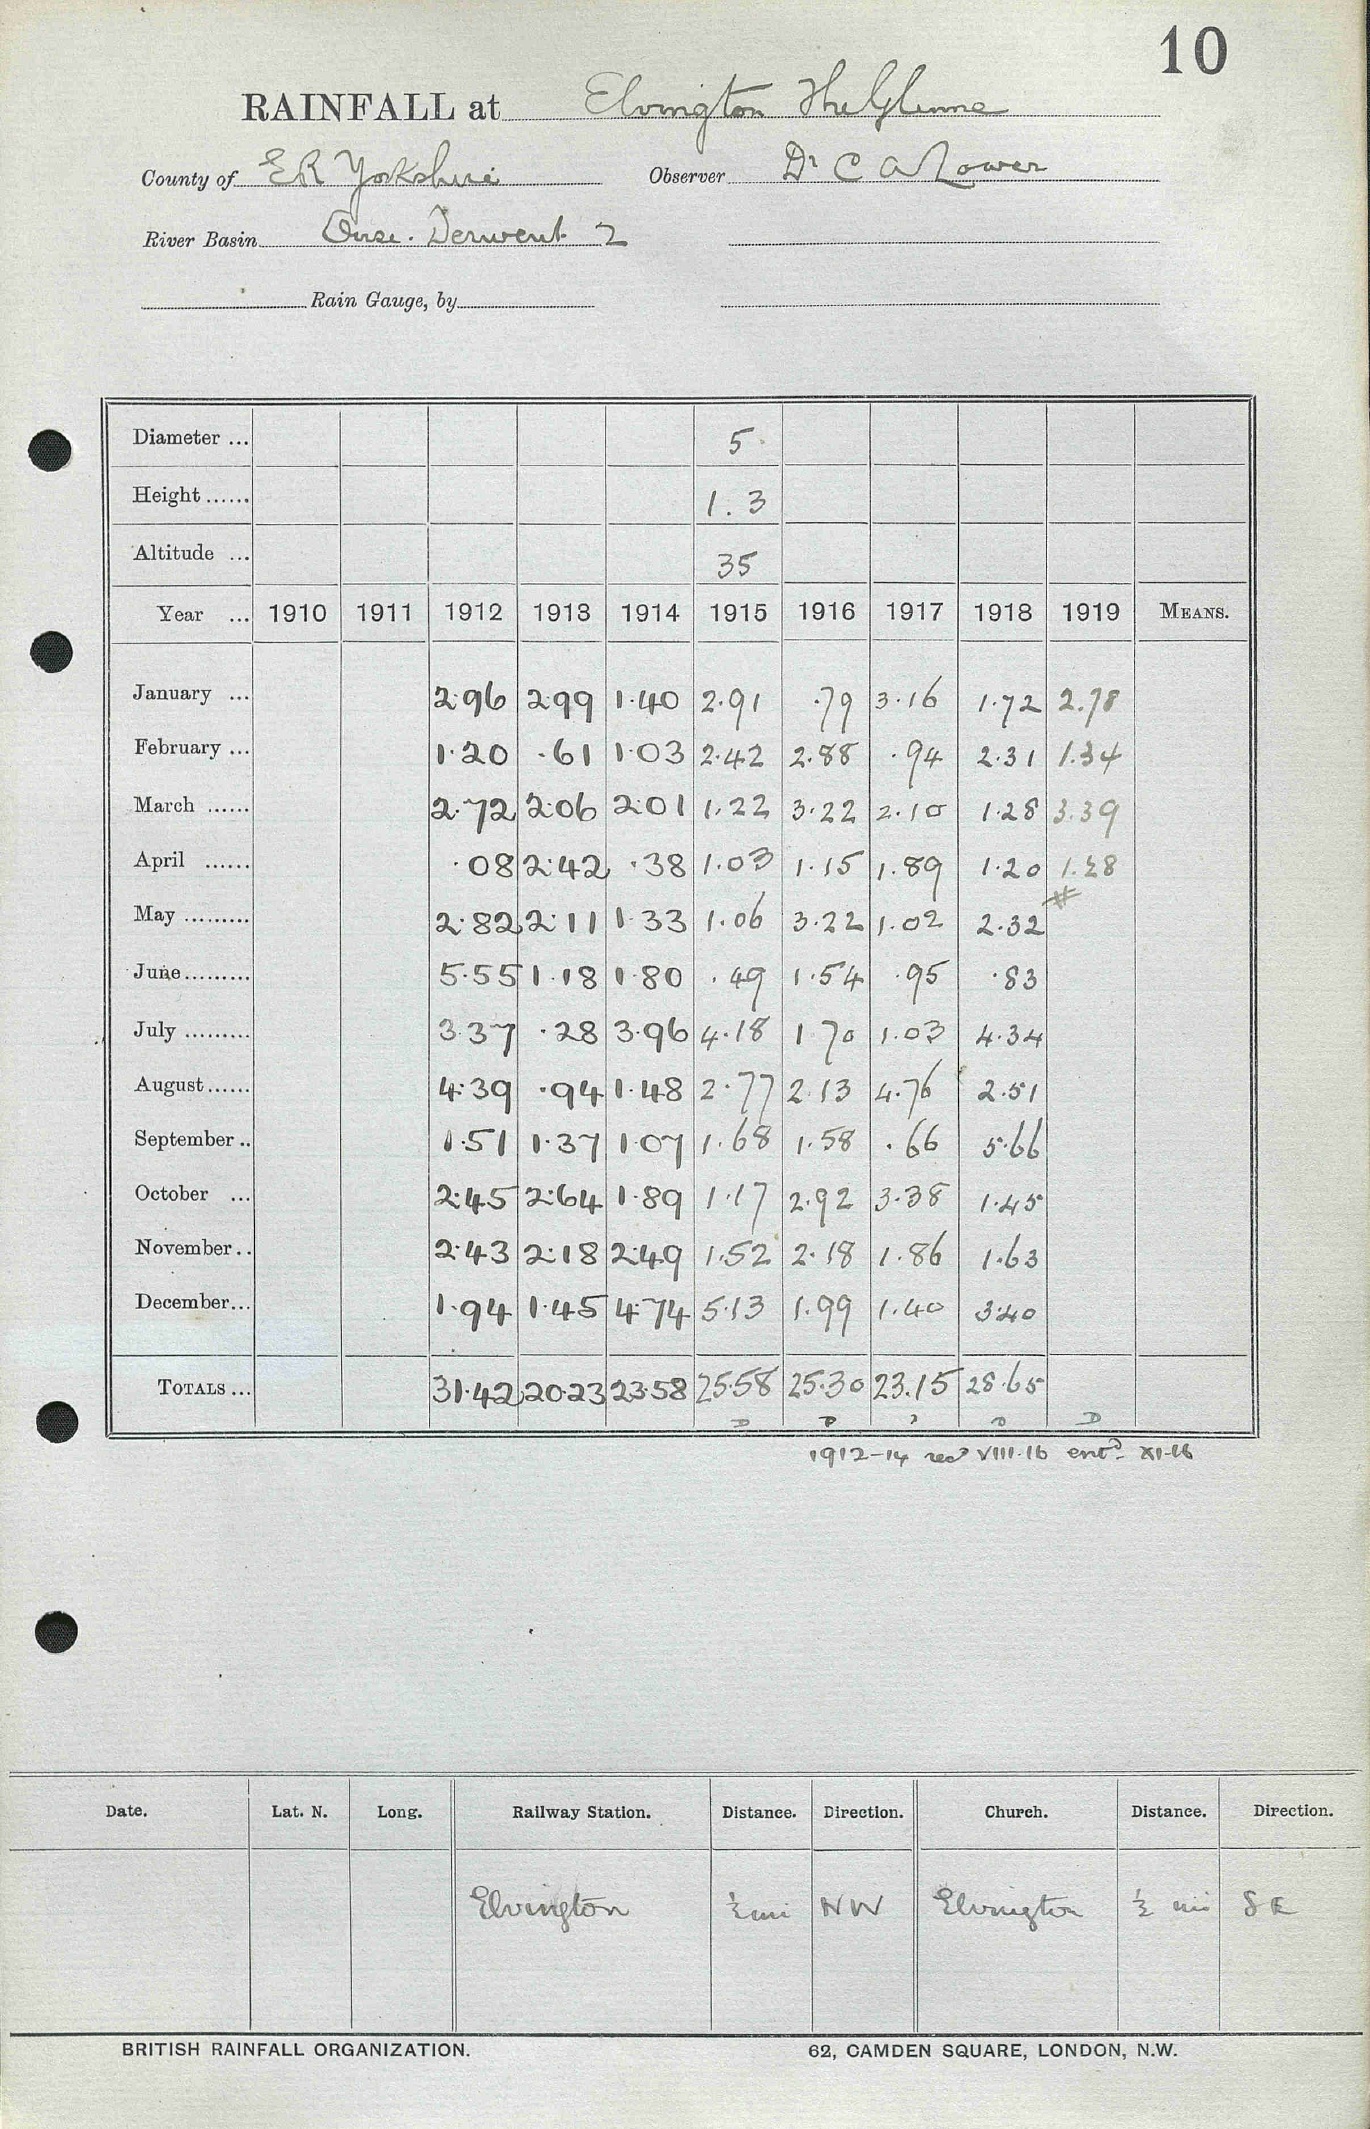 10
RAINFALL at Elvington The
County of ER Yorkshire Observer Dr C A Lower
River Basin Ouse. Derwent 2
Rain Gauge, by
Diameter ... 5
Height ...... 1.3
Altitude ... 35
Year ... 1910 1911 1912 1913 1914 1915 1916 1917 1918 1919 MEANS.
January ... 2.96 2.99 1.40 2.91 .79 3.16 1.72 2.78
February ... 1.20 .61 1.03 2.42 2.88 .94 2.31 1.34
March ...... 2.72 2.06 2.01 1.22 3.22 2.10 1.28 3.39
April ...... .08 2.42 .38 1.03 1.15 1.89 1.20 1.28
#
May ......... 2.82 2.11 1.33 1.06 3.22 1.02 2.32
June ......... 5.55 1.18 1.80 .49 1.54 .95 .83
July ......... 3.37 .28 3.96 4.18 1.70 1.03 4.34
August ...... 4.39 .94 1.48 2.77 2.13 4.76 2.51
September .. 1.51 1.37 1.07 1.68 1.58 .66 5.66
October ... 2.45 2.64 1.89 1.17 2.92 3.38 1.45
November .. 2.43 2.18 2.49 1.52 2.18 1.86 1.63
December ... 1.94 1.45 4.74 5.13 1.99 1.40 3.40
TOTALS ... 31.42 20.23 23.58 25.58 25.30 23.15 28.65
D D D D
1912-14 recd VIII.16 entd XI-16
Date. Lat. N. Long. Railway Station. Distance. Direction. Church. Distance. Direction.
Elvington ½ mi NW Elvington ½ mi SE
BRITISH RAINFALL ORGANIZATION. 62, CAMDEN SQUARE, LONDON, N.W.